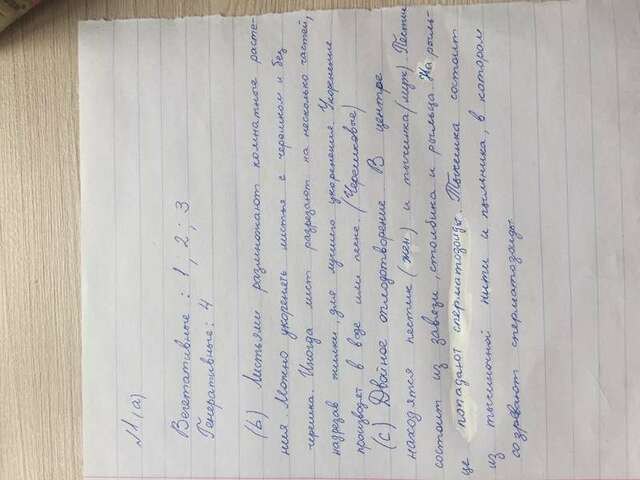 №1(а)
Вегетативные : 1 , 2 ; 3
Генеративные : 4
(b) Листьями размножают комнатные расте-
ния. Можно укоренять листья с черешком и без
черешка. Иногда лист разрезают на несколько частей,
надрезав жилки, для лучшего укоренения. Укоренение
производят в воде или песке. (Черешковые)
(с) Двойное оплодотворение. В центре
находятся пестик (жен) и тычинка (муж). Пестик
состоит из завязи, столбика и рыльца. На рыль-
це попадают сперматозоиды. Тычинка состоит
из тычиночной нити и пыльника, в котором
созревают сперматозоиды